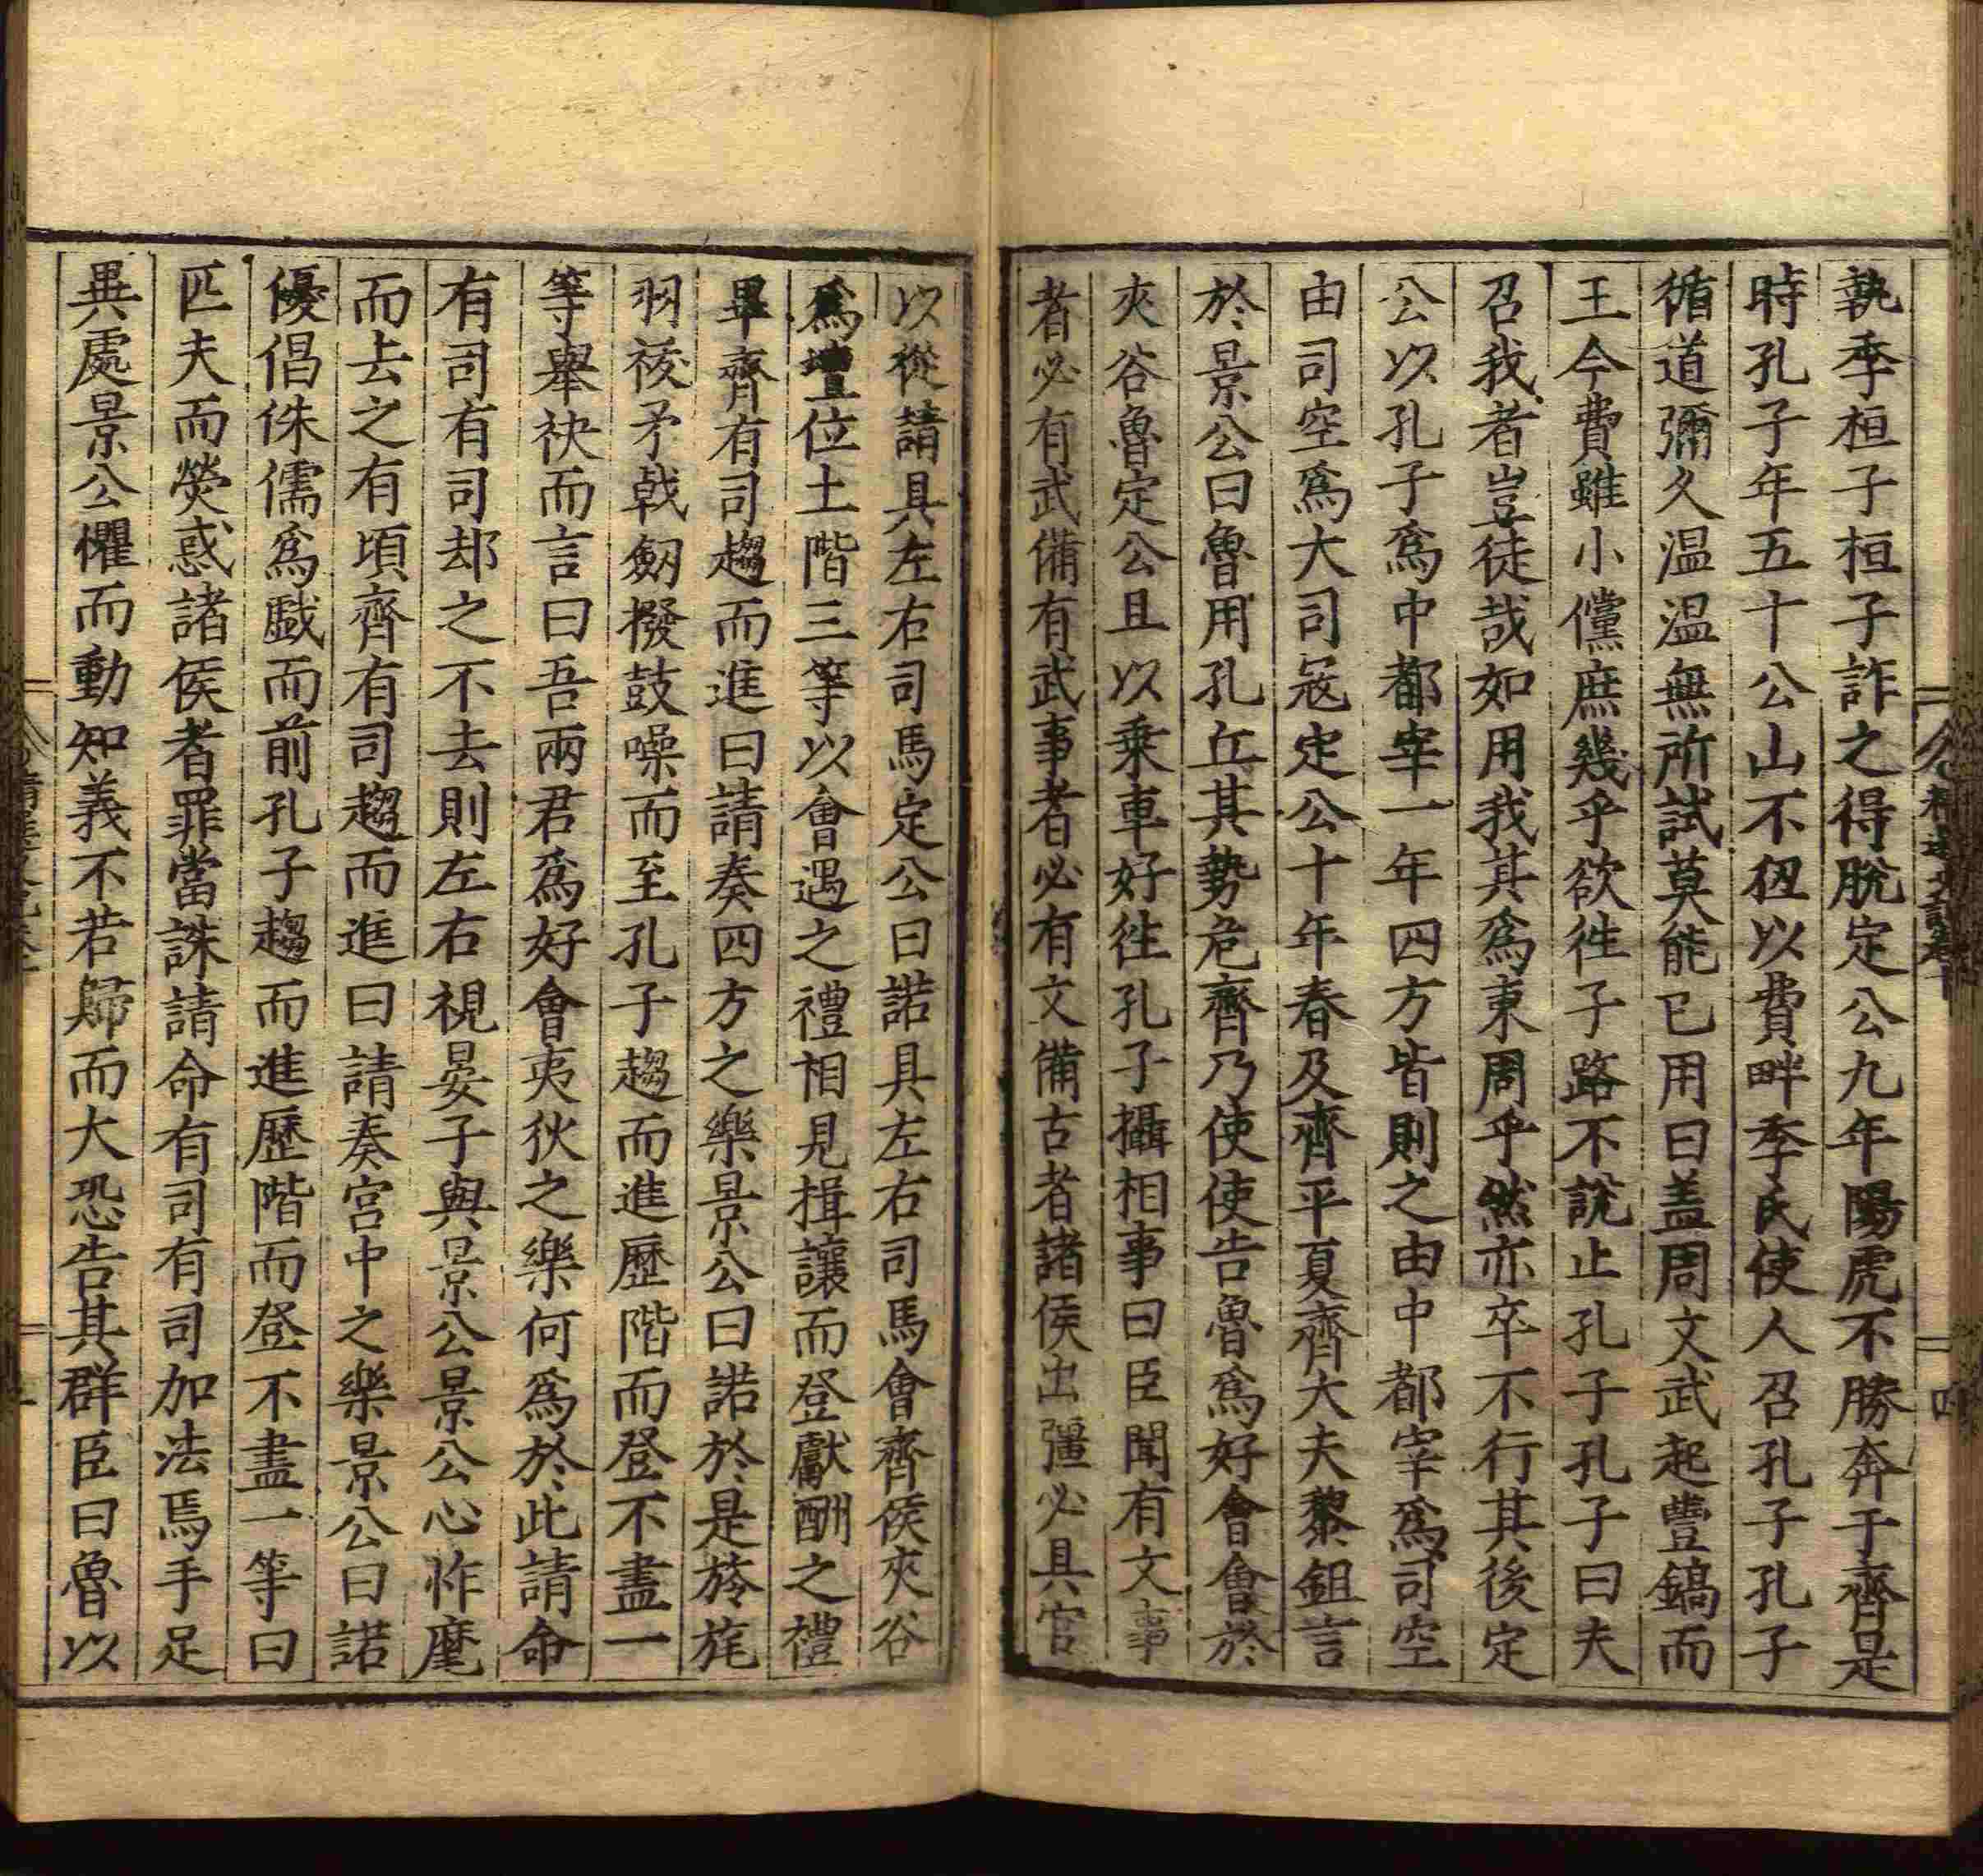 執季桓子桓子詐之得脫定公九年陽虎不勝奔于齊是
時孔子年五十公山不狃以費畔季氏使人召孔子孔子
循道彌久温温無所試莫能已用曰盖周文武起豐鎬而
王今費雖小儻庶幾乎欲徃子路不說止孔子孔子曰夫
召我者豈徒哉如用我其爲東周乎然亦卒不行其後定
公以孔子爲中都宰一年四方皆則之由中都宰爲司空
由司空爲大司寇定公十年春及齊平夏齊大夫黎鉏言
於景公曰魯用孔丘其勢危齊乃使使告魯爲好會會於
夾谷魯定公且以乗車好徃孔子攝相事曰臣聞有文事
者必有武備有武事者必有文備古者諸侯出彊必具官
以從請具左右司馬定公曰諾具左右司馬會齊侯夾谷
爲壇位土階三等以會遇之禮相見揖讓而登獻酬之禮
畢齊有司趨而進曰請奏四方之樂景公曰諾於是旍旄
羽袚矛戟劒撥鼓噪而至孔子趨而進歷階而登不盡一
等舉袂而言曰吾兩君爲好會夷狄之樂何爲於此請命
有司有司却之不去則左右視晏子與景公景公心怍麾
而去之有頃齊有司趨而進曰請奏宮中之樂景公曰諾
優倡侏儒爲戱而前孔子趨而進歷階而登不盡一等曰
匹夫而熒惑諸侯者罪當誅請命有司有司加法焉手足
異處景公懼而動知義不若歸而大恐告其群臣曰魯以